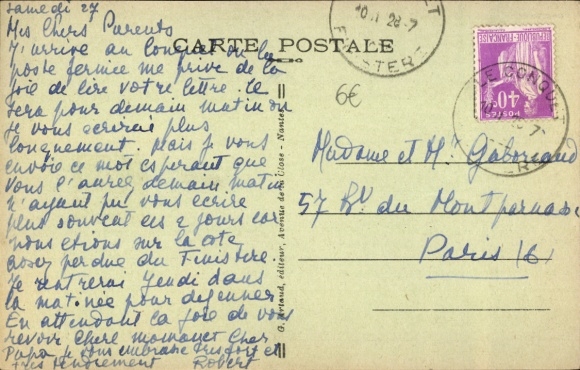 Samedi 27
Mes Chers Parents
J'arrive au Conquet ou la
poste fermée me prive de la
joie de lire votre lettre. Ce
sera pour demain matin
Je vous écrirai plus
longuement. Mais je vous
envoie ce mot espérant que
vous l'aurez demain matin
n'ayant pu vous écrire
plus souvent ces 2 jours car
nous étions sur la cote
assez perdue du Finistère.
Je rentrerai Jeudi dans
la matinée pour déjeuner
En attendant la joie de vous
revoir Chère mamanet Cher
Papa je vous embrasse très fort et
très tendrement Robert
CARTE POSTALE
6€
G. Artaud, éditeur, Avenue de la Close - Nantes
LE CONQUET
FINISTERE
RÉPUBLIQUE FRANÇAISE
40c
POSTES
Madame et Mr
57 Bd du Montparnasse
Paris (6)